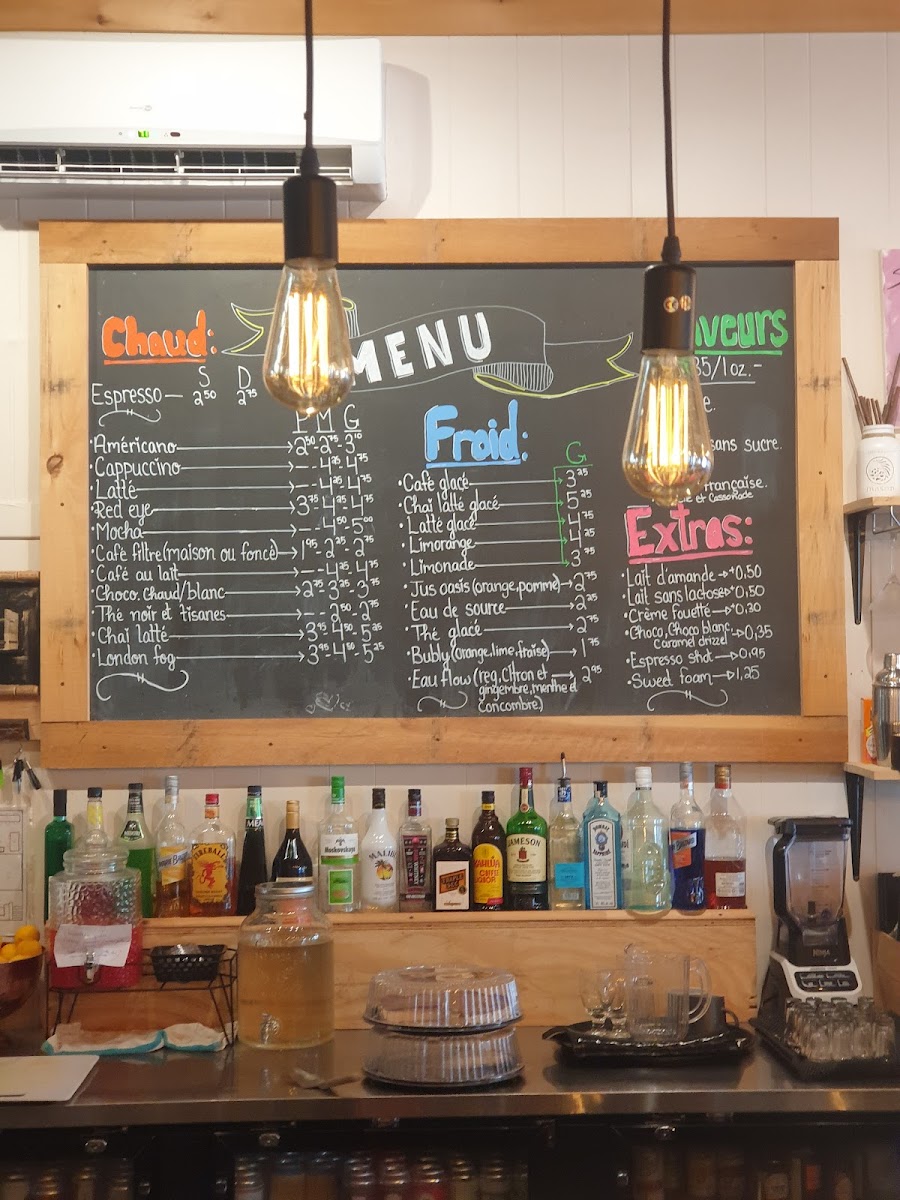 MENU
Chaud:
S D
Espresso — 2.50 2.75
P M G
•Américano → 2.50 - 2.75 - 3.10
•Cappuccino → -- 4.25 - 4.75
•Latté → -- 4.25 - 4.75
•Red eye → 3.75 - 4.25 - 4.75
•Mocha → -- 4.50 - 5.00
•Café filtre (maison ou foncé) → 1.95 - 2.25 - 2.75
•Café au lait → -- 4.25 - 4.75
•Choco. chaud/blanc → 2.75 - 3.25 - 3.75
•Thé noir et tisanes → -- 2.50 - 2.75
•Chai latté → 3.95 - 4.50 - 5.25
•London fog → 3.95 - 4.50 - 5.25
Froid:
G
•Café glacé → 3.25
•Chai latté glacé → 5.25
•Latté glacé → 4.75
•Limorange → 4.25
•Limonade → 3.75
•Jus oasis (orange, pomme) → 2.75
•Eau de source → 2.25
•Thé glacé → 2.75
•Bubly (orange, lime, fraise) → 1.75
•Eau flow (reg, Citron et → 2.95
gingembre, menthe et
concombre)
veurs
/1oz.-
sans sucre.
Française.
Extras:
•Lait d'amande → +0,50
•Lait sans lactose → +0,50
•Crème fouetté → +0.30
•Choco, Choco blanc, → 0,35
Caramel drizzel
•Espresso shot → 0.95
•Sweet foam → 1,25
FIREBALL
MALIBU
TRIPLE SEC
KAHLÚA
JAMESON
BOMBAY
NINJA